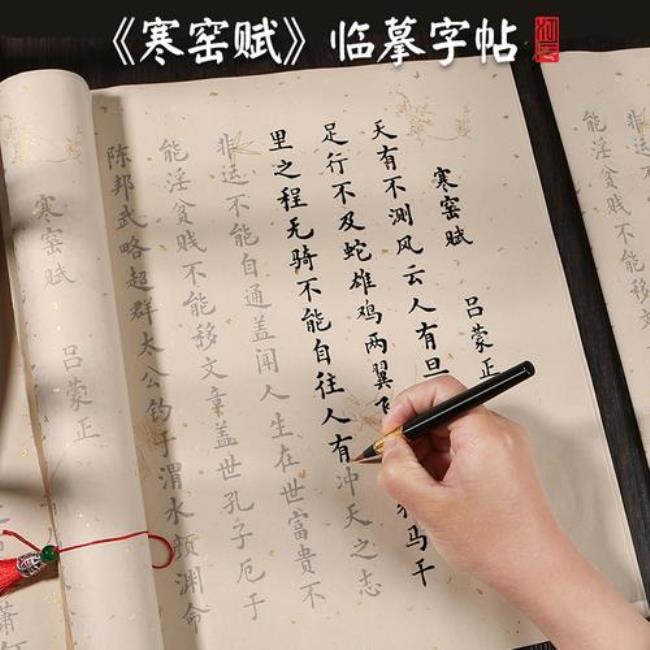 《寒窑赋》临摹字帖
寒窑赋
吕蒙正
天有不测风云人有旦
足行不及蛇雄鸡两翼飞
马千
里之程无骑不能自往人有冲天之志
非运不能自通盖闻人生在世富贵不
能淫贫贱不能移文章盖世孔子厄于
陈邦武略超群太公钓于渭水颜渊命
寒窑赋
吕蒙正
非运不
能淫贫贱不能移